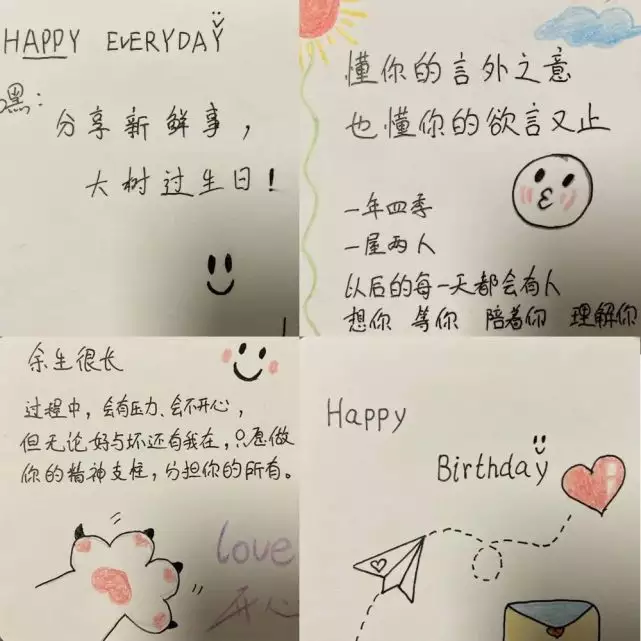 HAPPY EVERYDAY
嘿：
分享新鲜事，
大树过生日！
懂你的言外之意
也懂你的欲言又止
一年四季
一屋两人
以后的每一天都会有人
想你 等你 陪着你 理解你
余生很长
过程中，会有压力、会不开心，
但无论好与坏还有我在，只愿做
你的精神支柱，分担你的所有。
love
开心
Happy
Birthday